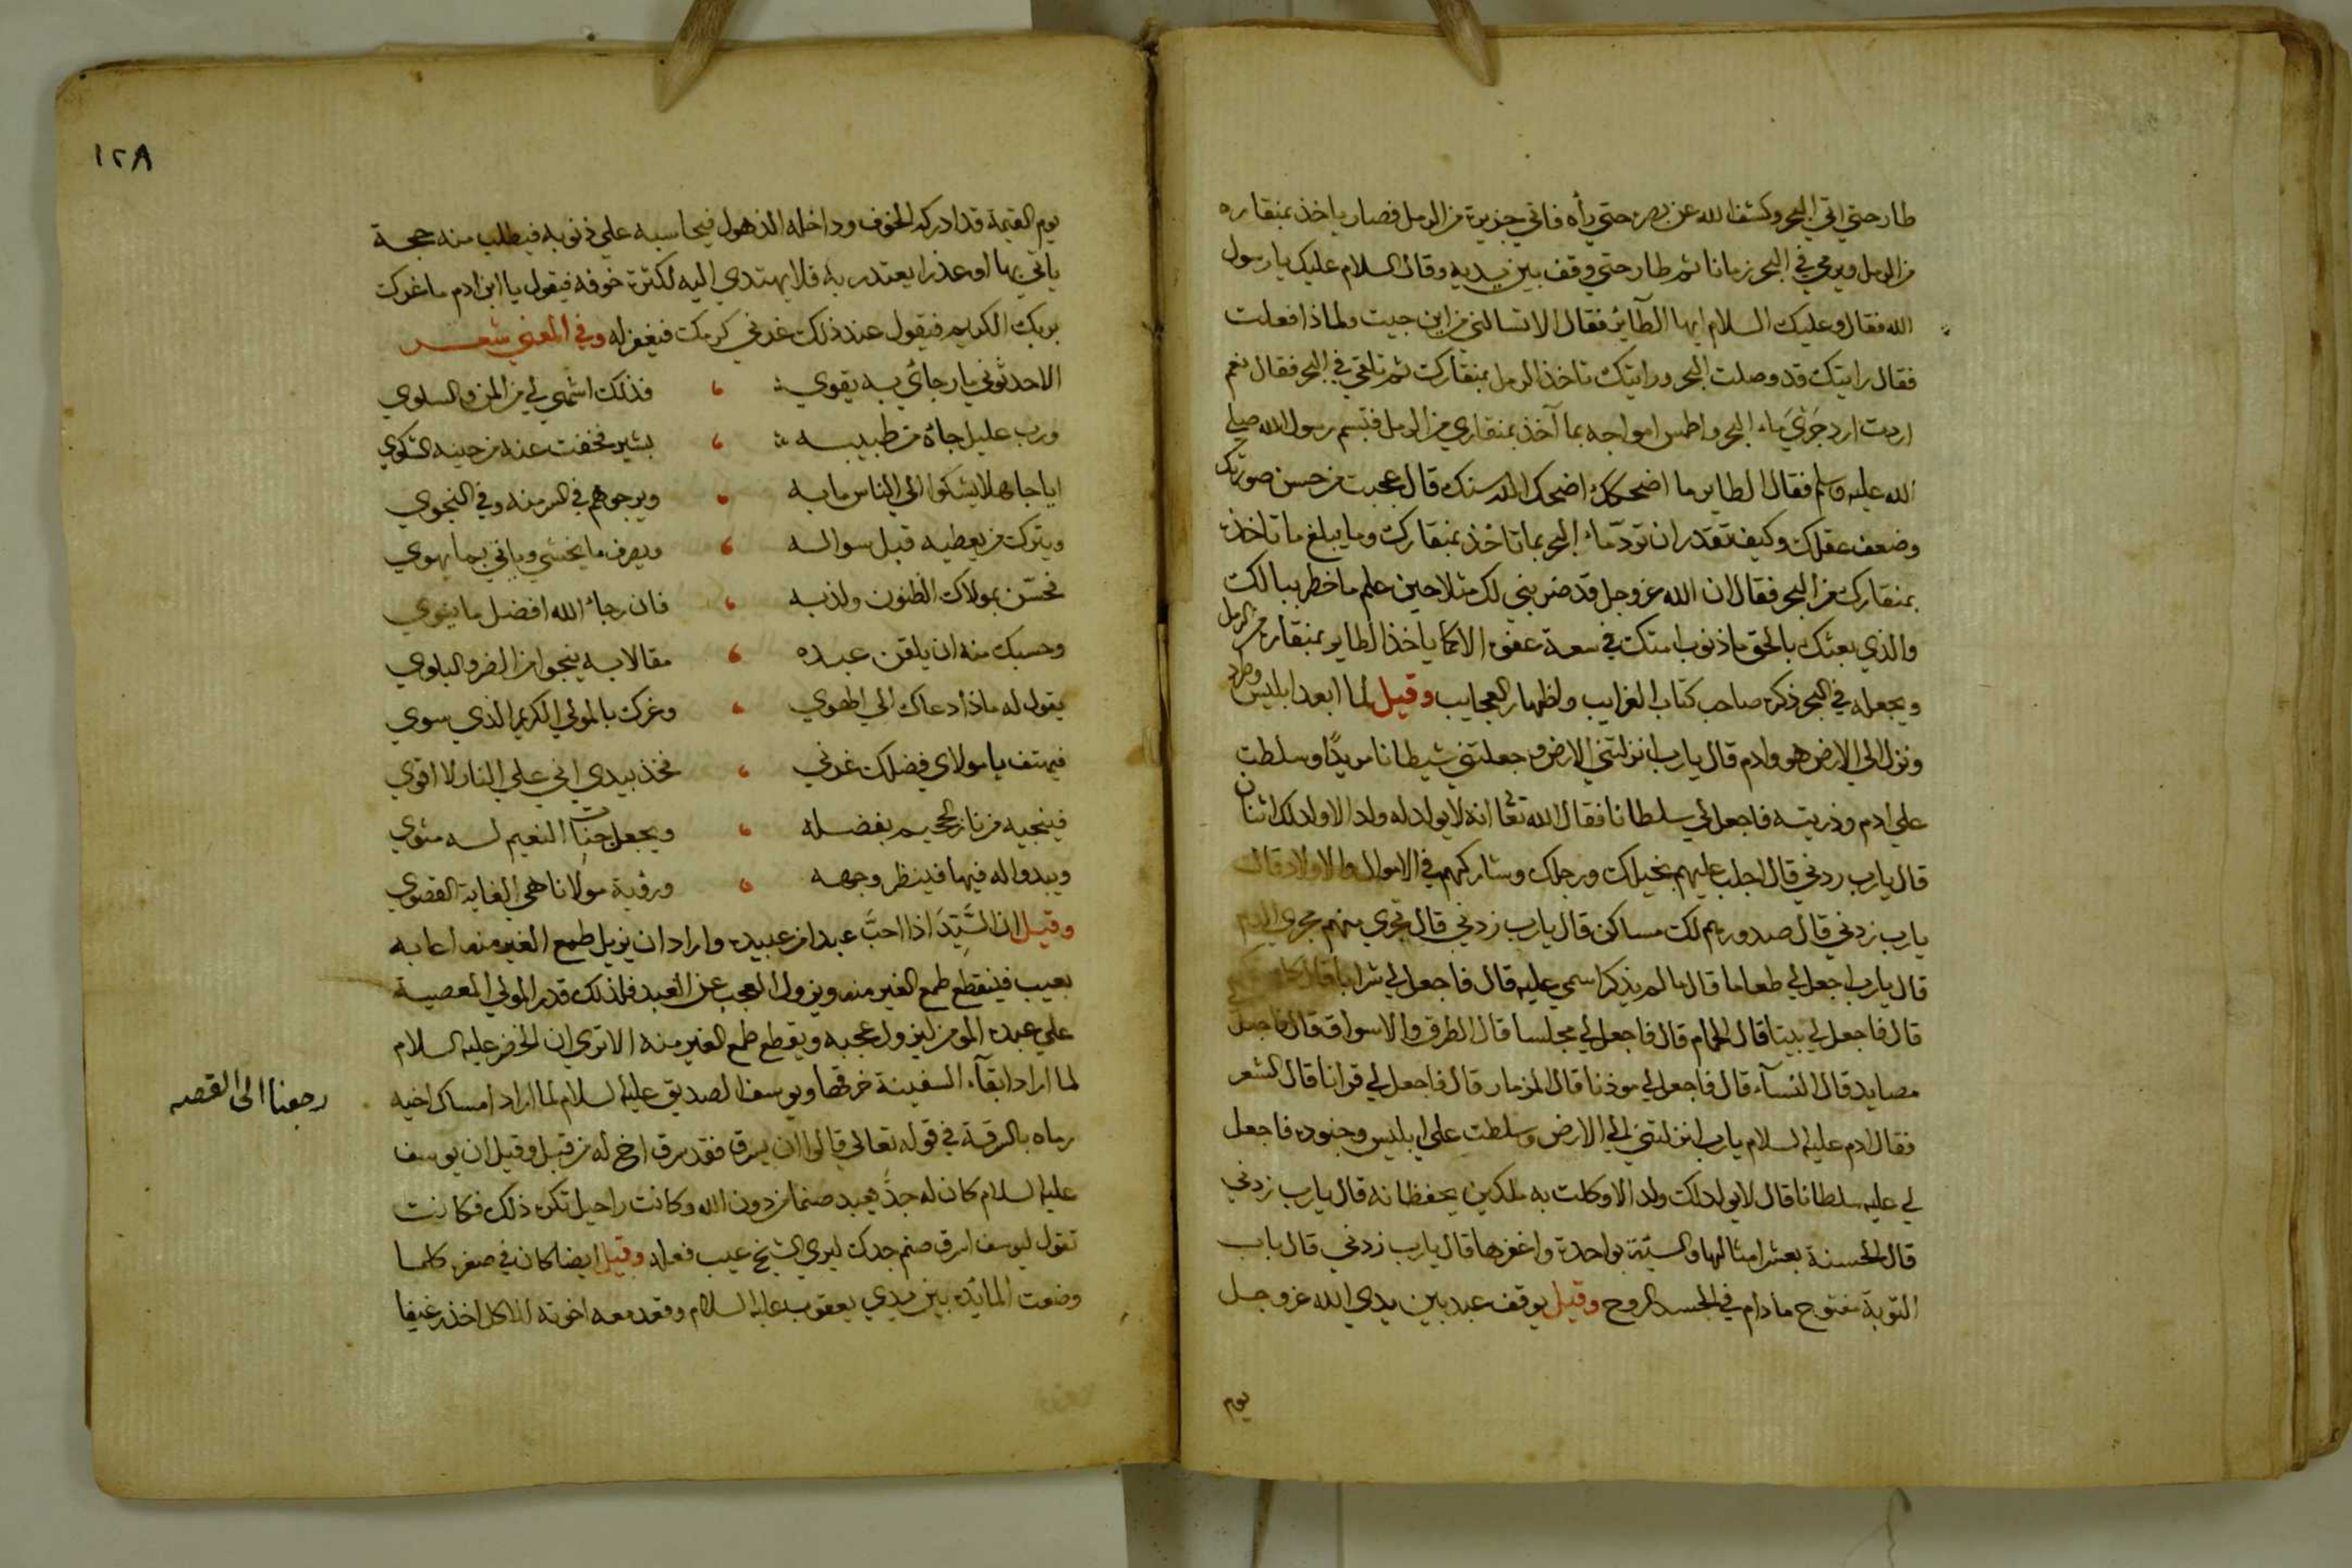 طار حتي اتي البحر وكشف الله عن بصره حتي رأه فاتي جزيرة من الرمل فصار ياخذ بمنقاره
من الرمل ويرمي في البحر زمانا ثم طار حتي وقف بين يديه وقال السلام عليك يا رسول
الله فقال وعليك السلام ايها الطآئر فقال الا تسالني من اين جيت ولماذا فعلت
فقال رايتك قد وصلت البحر ورايتك تاخذ الرمل بمنقارك ثم تلقي في البحر فقال نعم
اردت ارد جري ماء البحر واطمس امواجه بما آخذ بمنقاري من الرمل فتبسم رسول الله صلي
الله عليه وسلم فقال الطاير ما اضحكك اضحك الله سنك قال عجبت من حسن صورتك
وضعف عقلك وكيف تقدر ان تردّ ماء البحر بما تاخذ بمنقارك وما يبلغ ما تاخذه
بمنقارك من البحر فقال ان الله عز وجل قد ضربني لك مثلا حين علم ما خطر ببالك
والذي بعثك بالحق ما ذنوب امتك في سعة عفوه الا كما ياخذ الطاير بمنقاره من الرمل
ويجعله في البحر ذكره صاحب كتاب الغرايب واظهار العجايب وقيل لما ابعد ابليس وطرد
ونزل الي الارض هو وادم قال يا رب انزلتني الارض وجعلتني شيطانا مريدًا وسلطت
علي ادم وذريته فاجعل لي سلطانا فقال الله تعا انه لا يولد له ولد الا ولد لك اثنان
قال يا رب زدني قال اجلب عليهم بخيلك ورجلك وشاركهم في الاموال والاولاد قال
يا رب زدني قال صدورهم لك مساكن قال يا رب زدني قال تجري منهم مجري الدم
قال يا رب اجعل لي طعاما قال ما لم يذكر اسمي عليه قال فاجعل لي شرابا قال كل
قال فاجعل لي بيتا قال الحمام قال فاجعل لي مجلسا قال الطرق والاسواق قال فاجعل
مصايد قال النسآء قال فاجعل لي موذنا قال المزمار قال فاجعل لي قرانا قال الشعر
فقال ادم عليه السلام يا رب انزلتني الي الارض وسلطت علي ابليس وجنوده فاجعل
لي عليه سلطانا قال لا يولد لك ولد الا وكلت به ملكين يحفظانه قال يا رب زدني
قال الحسنة بعشر امثالها والسيئة بواحدة واغفرها قال يا رب زدني قال باب
التوبة مفتوح ما دام في الجسد الروح وقيل يوقف عبد بين يدي الله عز وجل
يوم
١٢٨
يوم القيمة قد ادركه الخوف وداخله الذهول فيحاسبه علي ذنوبه فيطلب منه حجة
ياتي بها او عذرا يعتذر به فلا يهتدي اليه لكثرة خوفه فيقول يا ابن ادم ما غرك
بربك الكريم فيقول عند ذلك غرني كرمك فيغفر له وفي المعني شعر
الا حدثوني يا رجائي به يقوي فذلك اشهي لي من المن والسلوي
ورب عليل جاءه من طبيبه بشير فخفت عنه من حينه الشكوي
ايا جاهلا يشكوا الي الناس ما به ويرجوهم في السر منه وفي النجوي
ويترك من يعطيه قبل سواله ويصرف ما يخشي وياتي بما يهوي
فحسّن بمولاك الظنون ولذ به فان رجاء الله افضل ما ينوي
وحسبك منه ان يلقن عبده مقالا به ينجوا من الضر والبلوي
يقول له ماذا دعاك الي الهوي وغرك بالمولي الكريم الذي سوي
فيهتف يا مولاي فضلك غرني فخذ بيدي اني علي النار لا اقوي
فينجيه من نار الجحيم بفضله ويجعل جنات النعيم له مثوي
ويبدوا له فيها فينظر وجهه ورؤية مولانا هي الغاية القصوي
وقيل ان السَّيِّدَ اذا احبَّ عبدا من عبيده واراد ان يزيل طمع الغير منه اعابه
بعيب فينقطع طمع الغير منه ويزول العجب عن العبد فلذلك قدر المولي المعصية
علي عبده المومن ليزول عجبه ويقطع طمع الغير منه الا تري ان الخضر عليه السلام
لما اراد ابقآء السفينة خرقها ويوسف الصديق عليه السلام لما اراد امساك اخيه
رماه بالسرقة في قوله تعالي قالوا ان يسرق فقد سرق اخ له من قبل وقيل ان يوسف
عليه السلام كان له جدّ يعبد صنما من دون الله وكانت راحيل تكره ذلك فكانت
تقول ليوسف اسرق صنم جدك ليري الشيخ عيب فعله وقيل ايضا كان في صغره كلما
وضعت المائدة بين يدي يعقوب عليه السلام وقعد معه اخوته للاكل اخذ رغيفا
رجعنا الى القصه